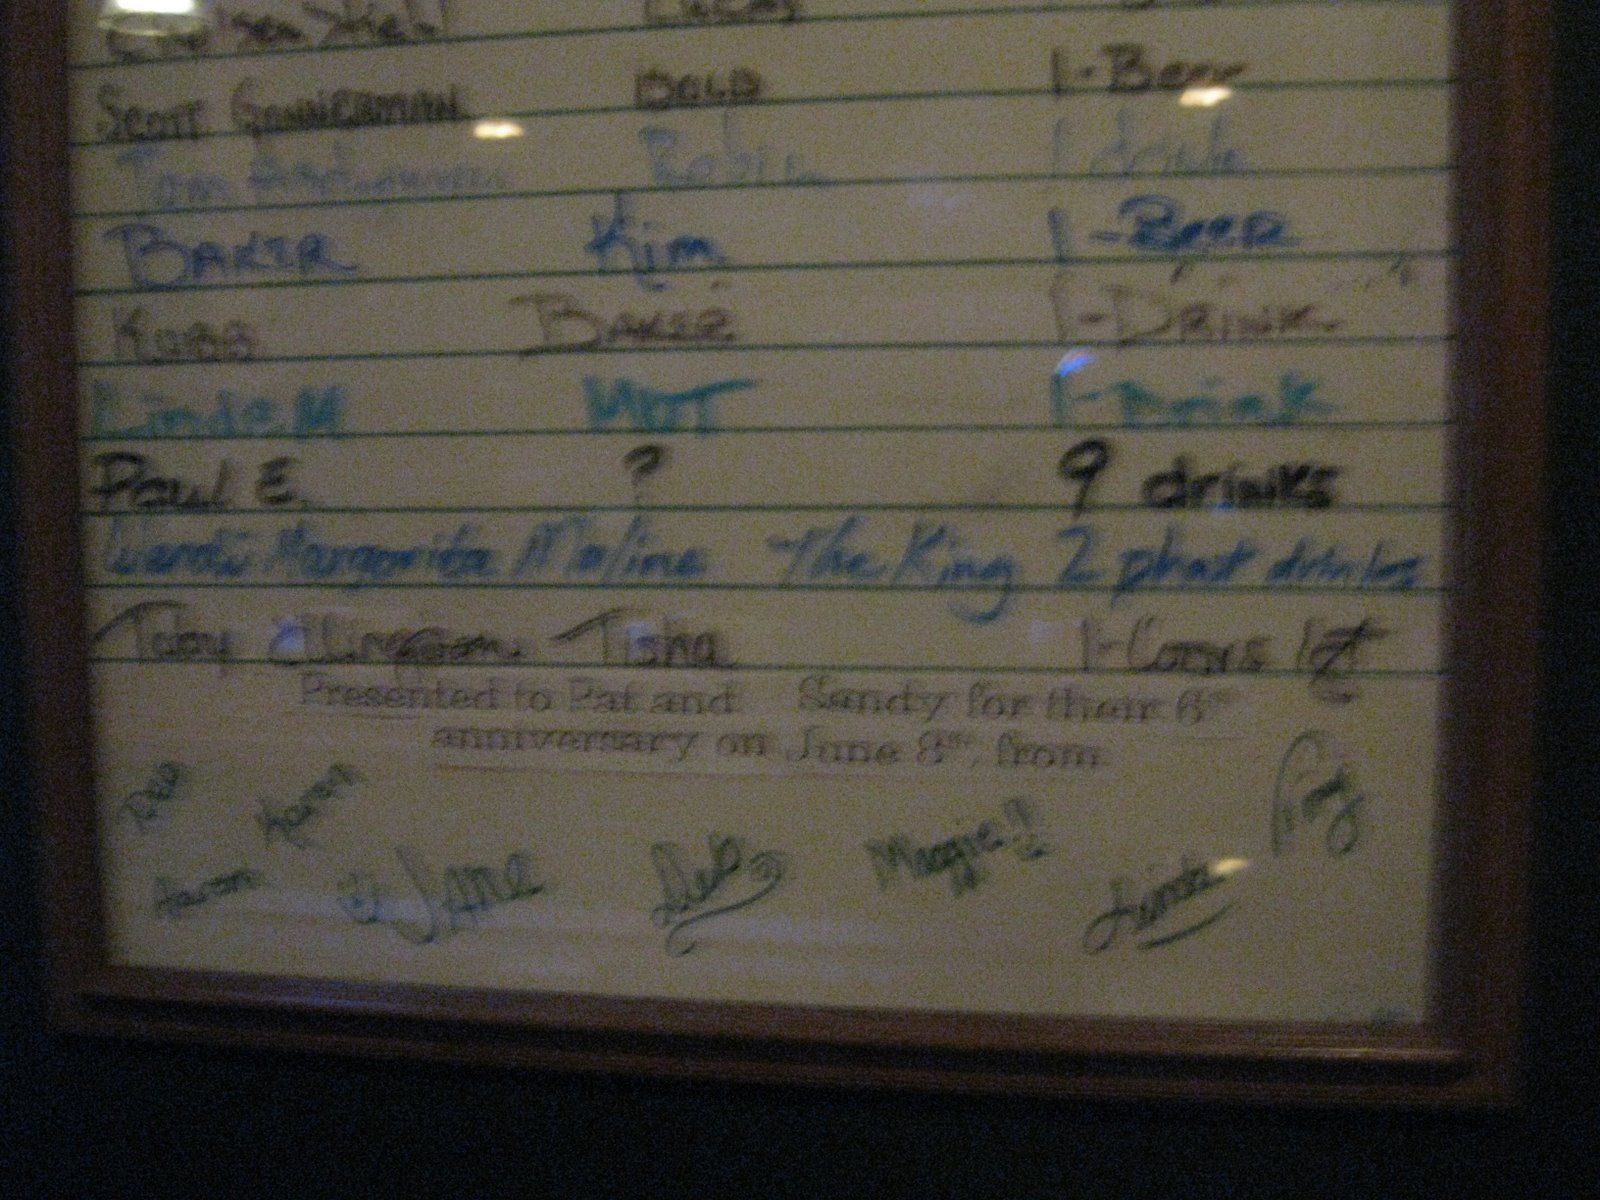 Lucas
SCOTT GONNERMAN BOLD 1-Beer
Tom Robin 1 drink
BAKER Kim 1-BEER
KUBB BAKER 1-DRINK
Linda M MUT 1-Drink
Paul E. ? 9 drinks
Wendi Margarita Moline The King 2 phat drinks
Toby Tisha 1-Coors
Presented to Pat and Sandy for their 6th
anniversary on June 8th, from
Karen
Aaron JANE Deb Maggie!! Linda